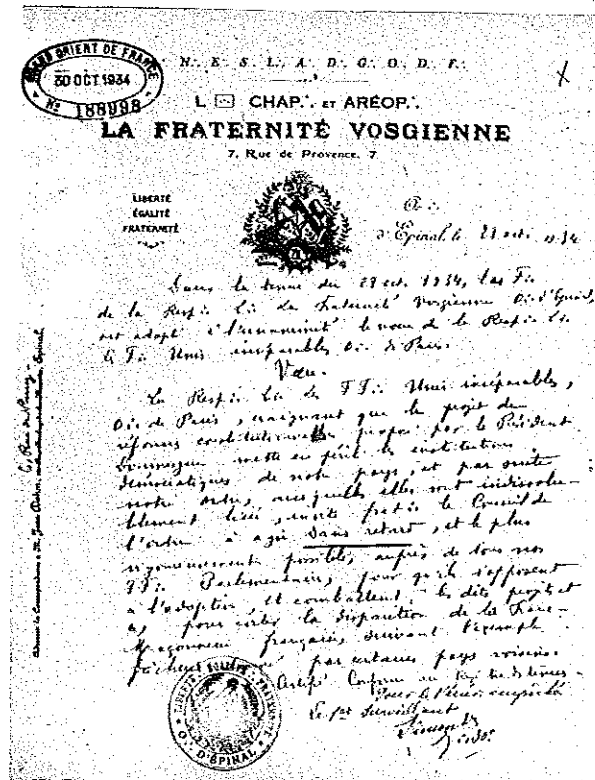 GRAND ORIENT DE FRANCE
30 OCT 1934
Nº 188998
N. E. S. L. A. D. G. O. D. F.
L CHAP∴ ET ARÉOP∴
LA FRATERNITÉ VOSGIENNE
7, Rue de Provence, 7
LIBERTÉ
ÉGALITÉ
FRATERNITÉ
O∴
d'Épinal, le 28 oct. 1934
Dans la tenue du 28 oct. 1934, les F∴
de la Resp∴ L∴ La Fraternité Vosgienne O∴ d'Épinal,
ont adopté à l'unanimité le voeu de la Resp∴ L∴
F∴ Unis inséparables O∴ de Paris.
Voeu.
La Resp∴ L∴ des FF∴ Unis inséparables,
O∴ de Paris, craignant que le projet de
réforme constitutionnelle proposé par le Président
Doumergue mette en péril les institutions
démocratiques de notre pays, et par suite
notre ordre, auxquelles elles sont indissolu-
blement liées, invite le Conseil de
l'ordre à agir sans retard, et le plus
vigoureusement possible, auprès de tous nos
FF∴ Parlementaires, pour qu'ils s'opposent
à l'adoption, et combattent les dits projets et
pour éviter la disparition de la Franc-
Maçonnerie française, suivant l'exemple
fâcheux par certains pays voisins.
Certifié Conforme au
Pour le Vénér∴ empêché
Le 1er Surveillant
O∴ D'ÉPINAL